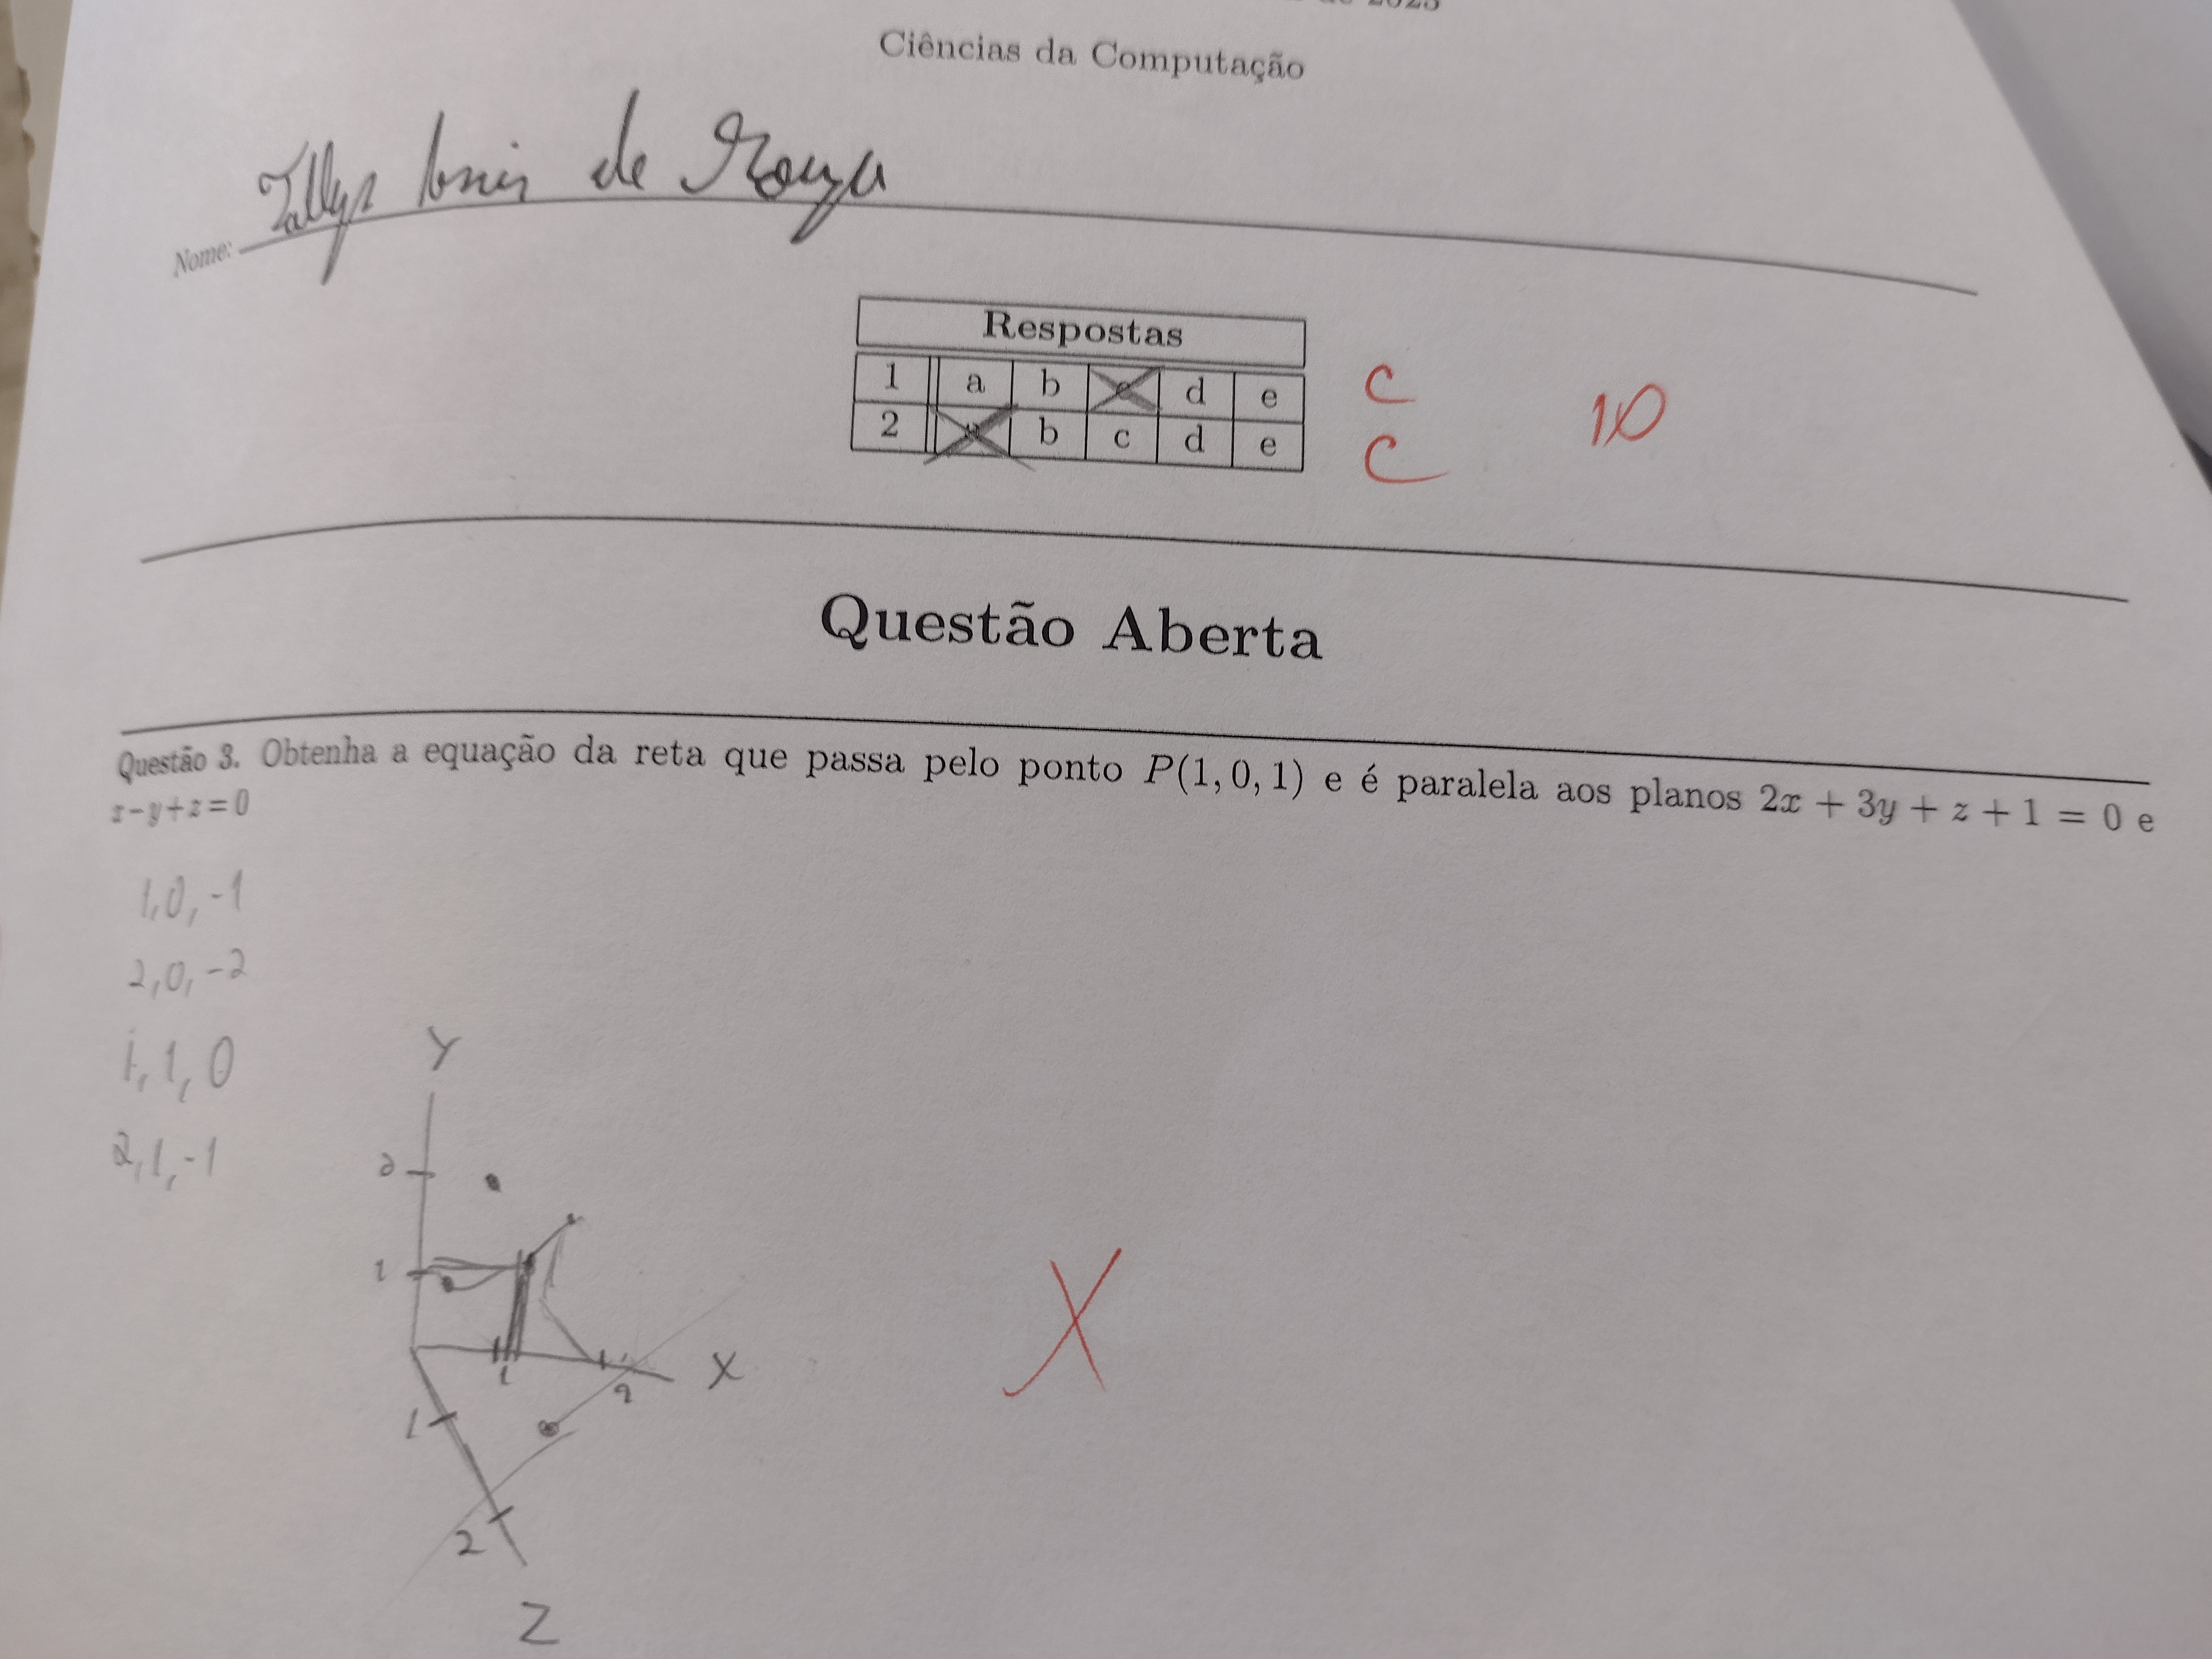 de 2023
Ciências da Computação
Nome: Tallys Luis de Souza
Respostas
1 a b c d e C
10
2 a b c d e C
Questão Aberta
Questão 3. Obtenha a equação da reta que passa pelo ponto P(1, 0, 1) e é paralela aos planos 2x + 3y + z + 1 = 0 e
x − y + z = 0
1, 0, -1
2, 0, -2
1, 1, 0
2, 1, -1
Y
2
1
X
1
2
1
2
Z
X